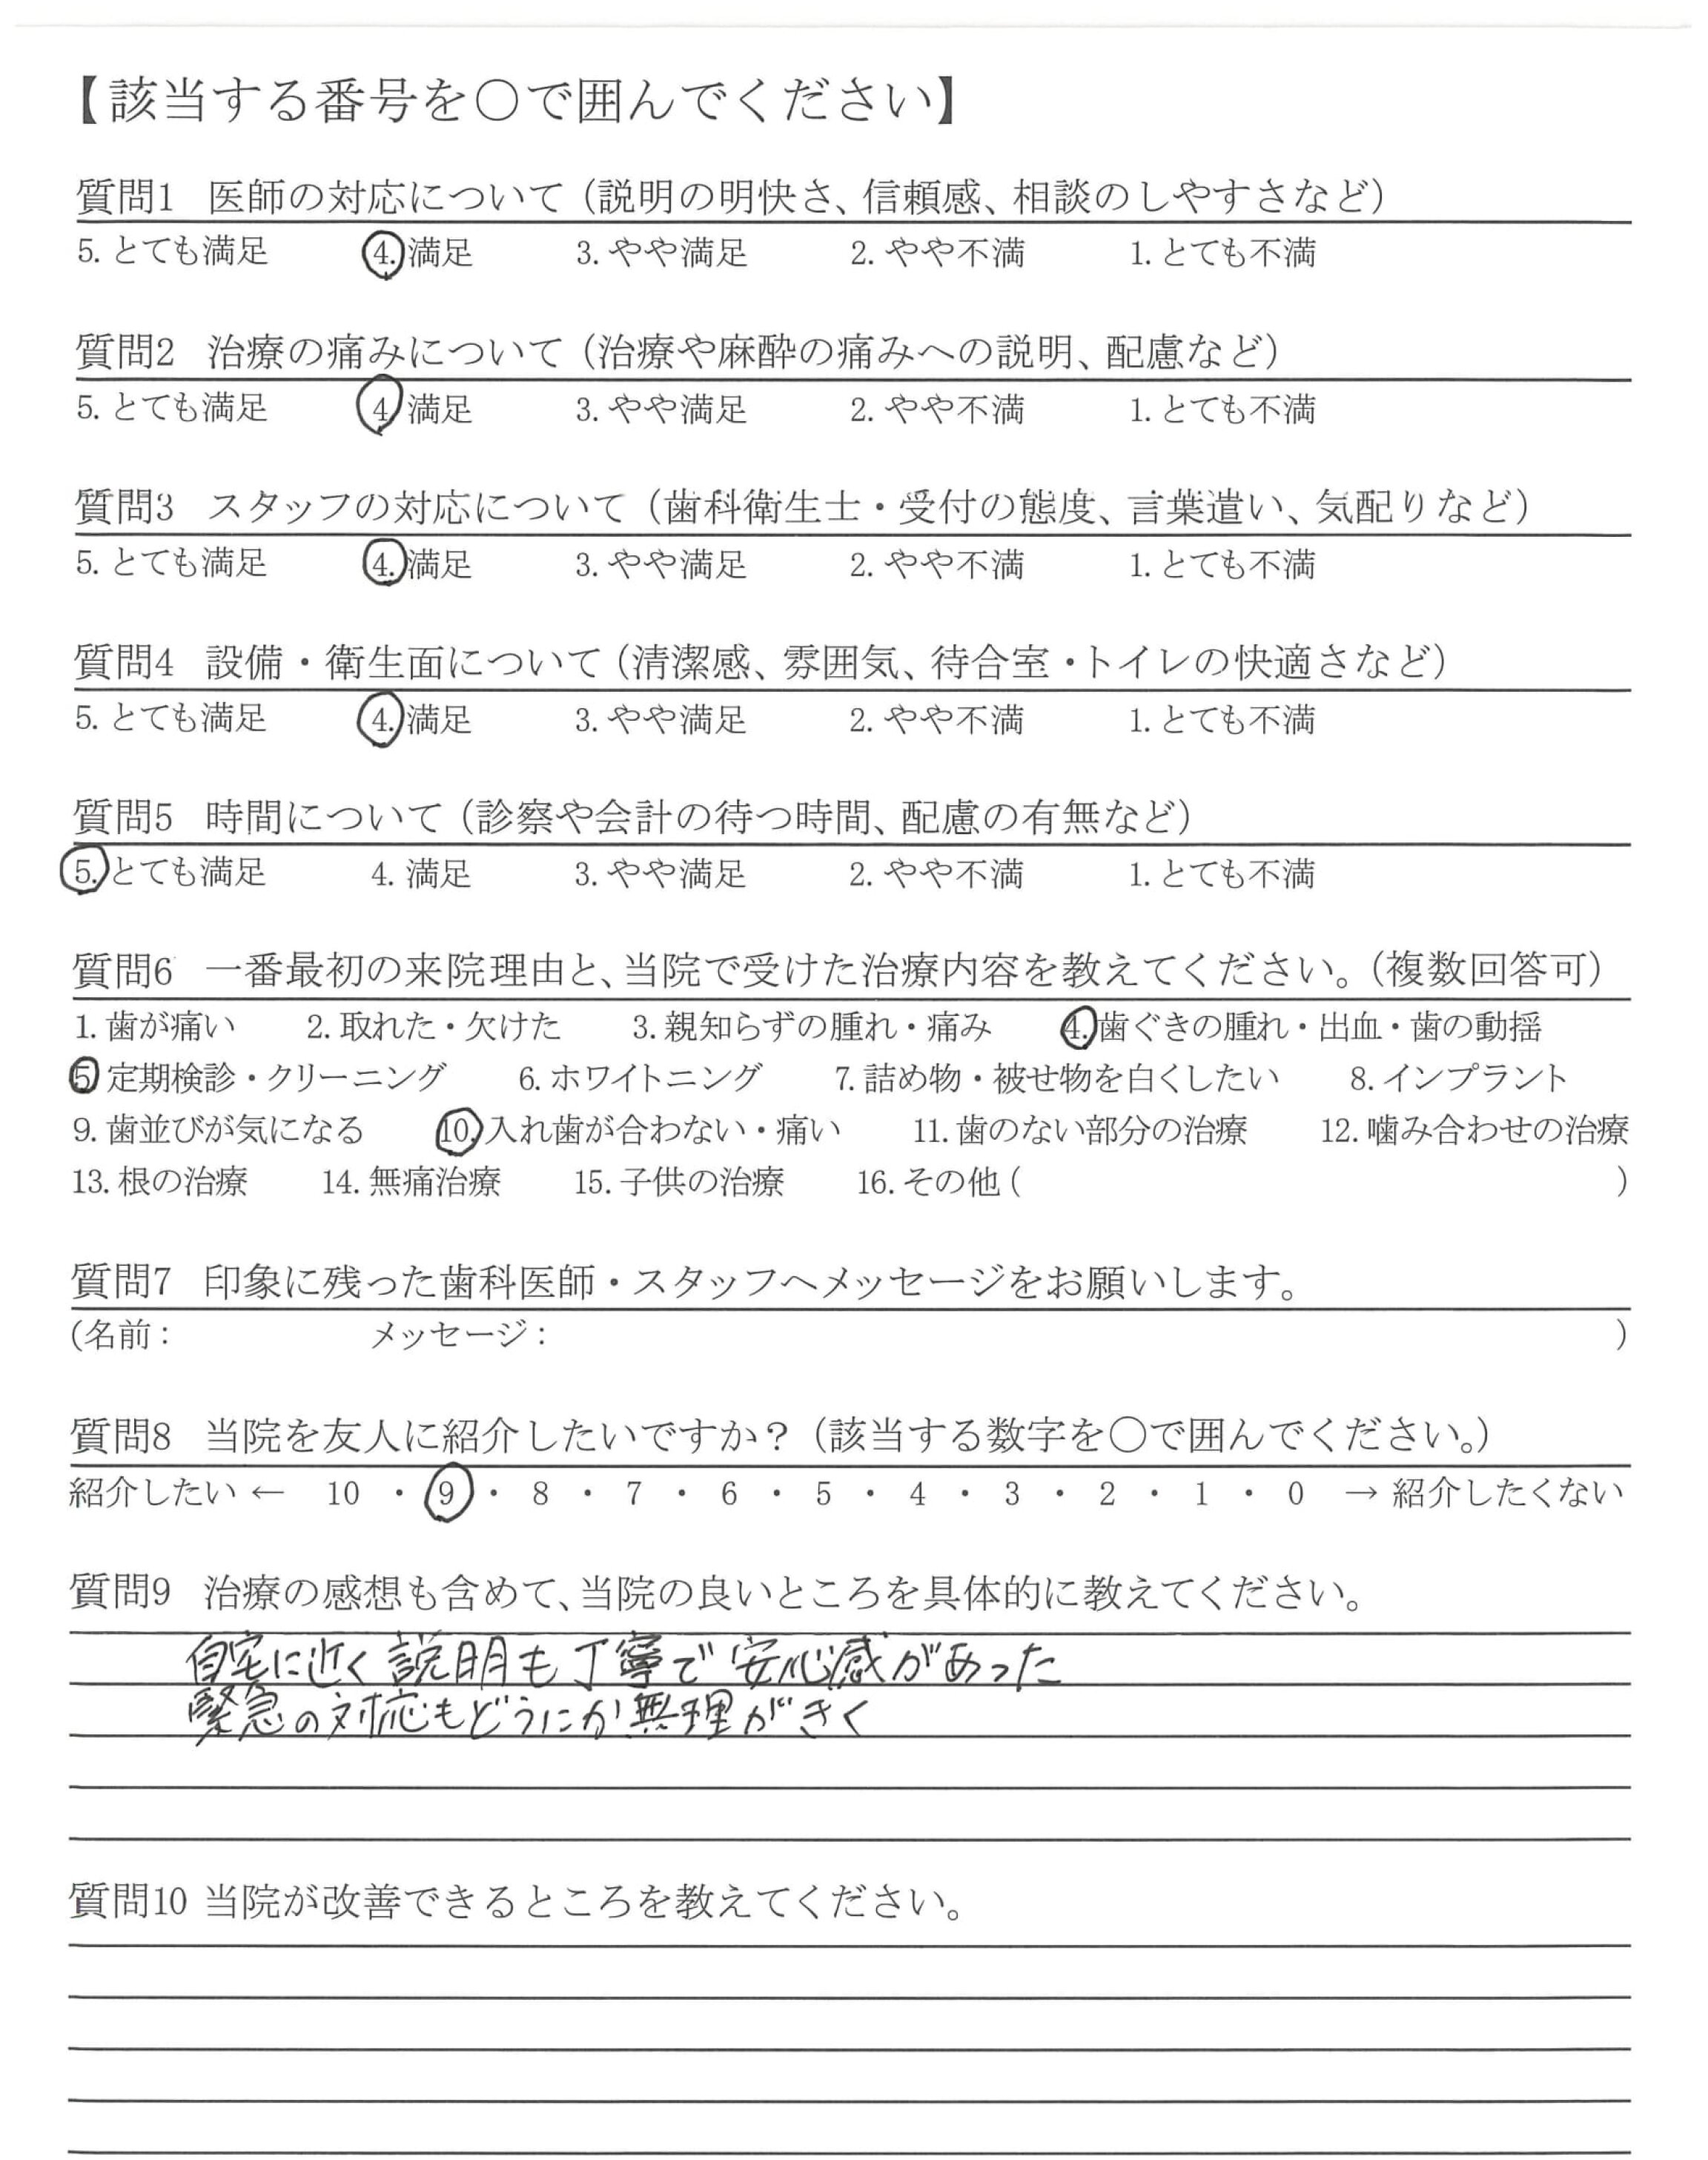 【該当する番号を〇で囲んでください】
質問1 医師の対応について（説明の明快さ、信頼感、相談のしやすさなど）
5. とても満足 4. 満足 3. やや満足 2. やや不満 1. とても不満
質問2 治療の痛みについて（治療や麻酔の痛みへの説明、配慮など）
5. とても満足 4. 満足 3. やや満足 2. やや不満 1. とても不満
質問3 スタッフの対応について（歯科衛生士・受付の態度、言葉遣い、気配りなど）
5. とても満足 4. 満足 3. やや満足 2. やや不満 1. とても不満
質問4 設備・衛生面について（清潔感、雰囲気、待合室・トイレの快適さなど）
5. とても満足 4. 満足 3. やや満足 2. やや不満 1. とても不満
質問5 時間について（診察や会計の待つ時間、配慮の有無など）
5. とても満足 4. 満足 3. やや満足 2. やや不満 1. とても不満
質問6 一番最初の来院理由と、当院で受けた治療内容を教えてください。（複数回答可）
1. 歯が痛い 2. 取れた・欠けた 3. 親知らずの腫れ・痛み 4. 歯ぐきの腫れ・出血・歯の動揺
5. 定期検診・クリーニング 6. ホワイトニング 7. 詰め物・被せ物を白くしたい 8. インプラント
9. 歯並びが気になる 10. 入れ歯が合わない・痛い 11. 歯のない部分の治療 12. 噛み合わせの治療
13. 根の治療 14. 無痛治療 15. 子供の治療 16. その他（ ）
質問7 印象に残った歯科医師・スタッフへメッセージをお願いします。
（名前： メッセージ： ）
質問8 当院を友人に紹介したいですか？（該当する数字を〇で囲んでください。）
紹介したい ← 10 ・ 9 ・ 8 ・ 7 ・ 6 ・ 5 ・ 4 ・ 3 ・ 2 ・ 1 ・ 0 → 紹介したくない
質問9 治療の感想も含めて、当院の良いところを具体的に教えてください。
自宅に近く説明も丁寧で安心感があった
緊急の対応もどうにか無理がきく
質問10 当院が改善できるところを教えてください。